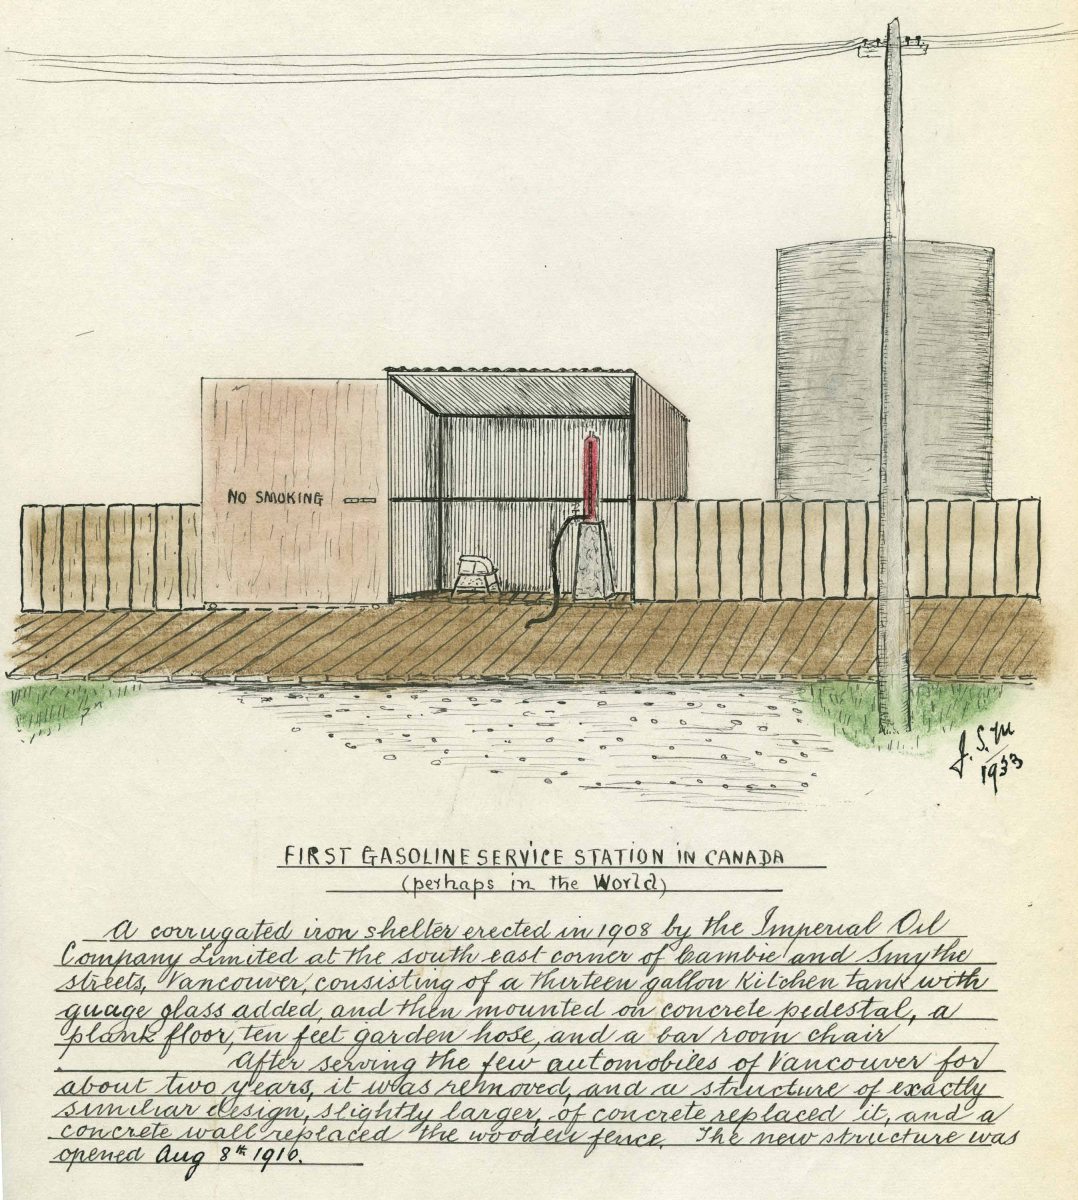 NO SMOKING
J. S. M
1933
FIRST GASOLINE SERVICE STATION IN CANADA
(perhaps in the World)
A corrugated iron shelter erected in 1908 by the Imperial Oil
Company Limited at the south east corner of Cambie and Smythe
streets, Vancouver, consisting of a thirteen gallon kitchen tank with
guage glass added, and then mounted on concrete pedestal, a
plank floor, ten feet garden hose, and a bar room chair
After serving the few automobiles of Vancouver for
about two years, it was removed, and a structure of exactly
similiar design, slightly larger, of concrete replaced it, and a
concrete wall replaced the wooden fence. The new structure was
opened Aug 8th 1910.